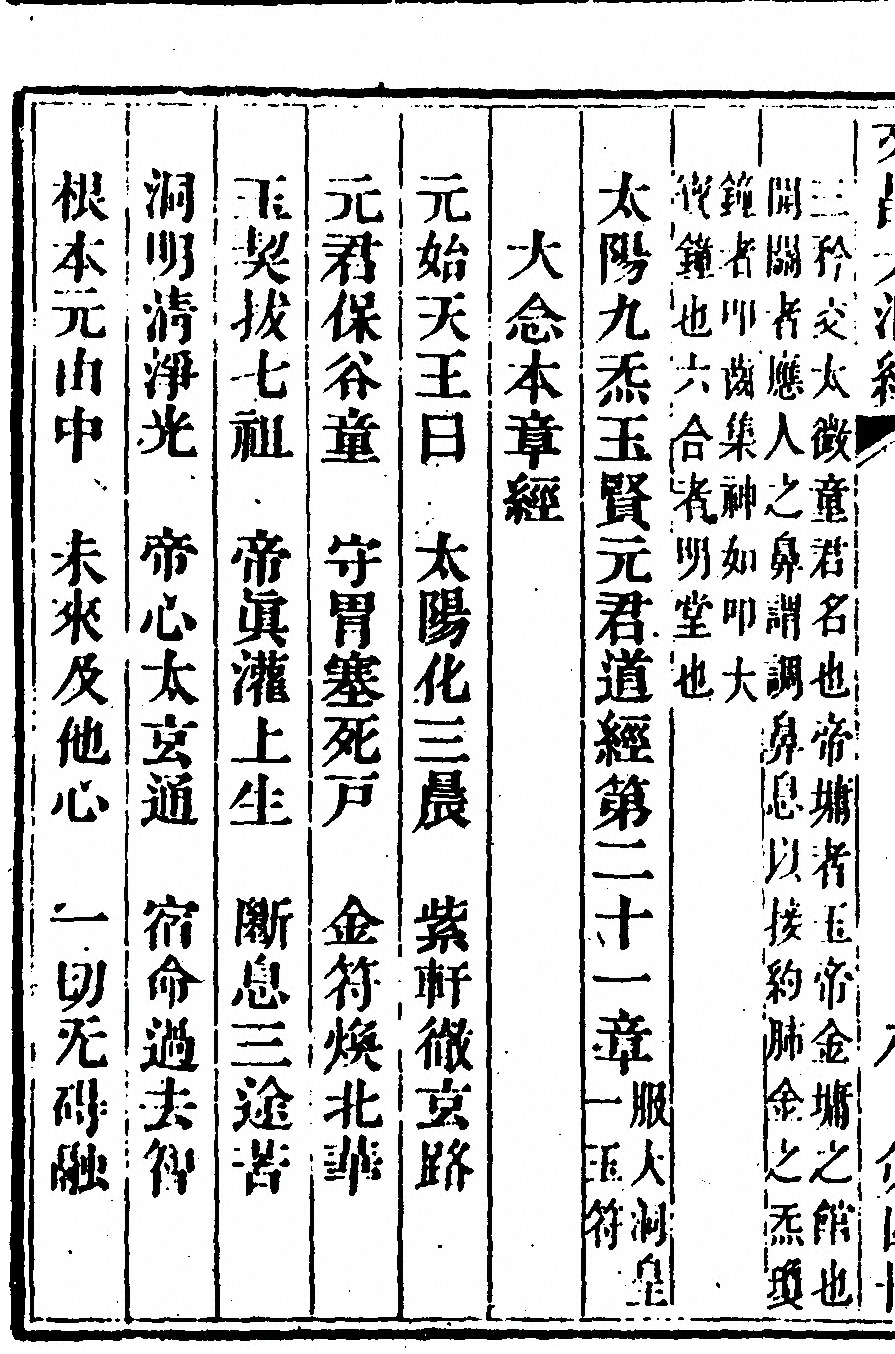 三矜交太微童君名也帝墉者玉帝金墉之館也
開關者應人之鼻謂調鼻息以接約肺金之炁瓊
鐘者叩齒集神如叩大
夜鐘也六合者明堂也
太陽九炁玉賢元君道經第二十一章
服大洞皇
一玉符
大念本章經
元始天王曰 太陽化三晨 紫軒徹玄路
元君保谷童 守胃塞死戸 金符煥北華
玉契拔七祖 帝眞灌上生 斷息三途苦
洞明淸淨光 帝心太玄通 宿命過去智
根本元由中 未來及他心 一切旡碍融